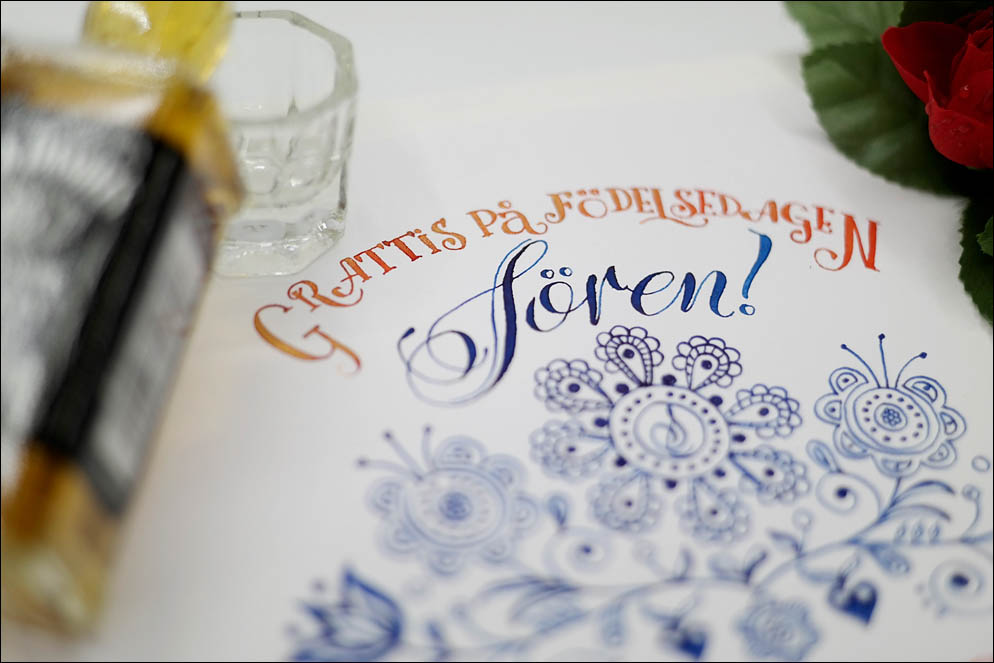 GRATTiS PÅ FÖDELSEDAGEN
Sören!